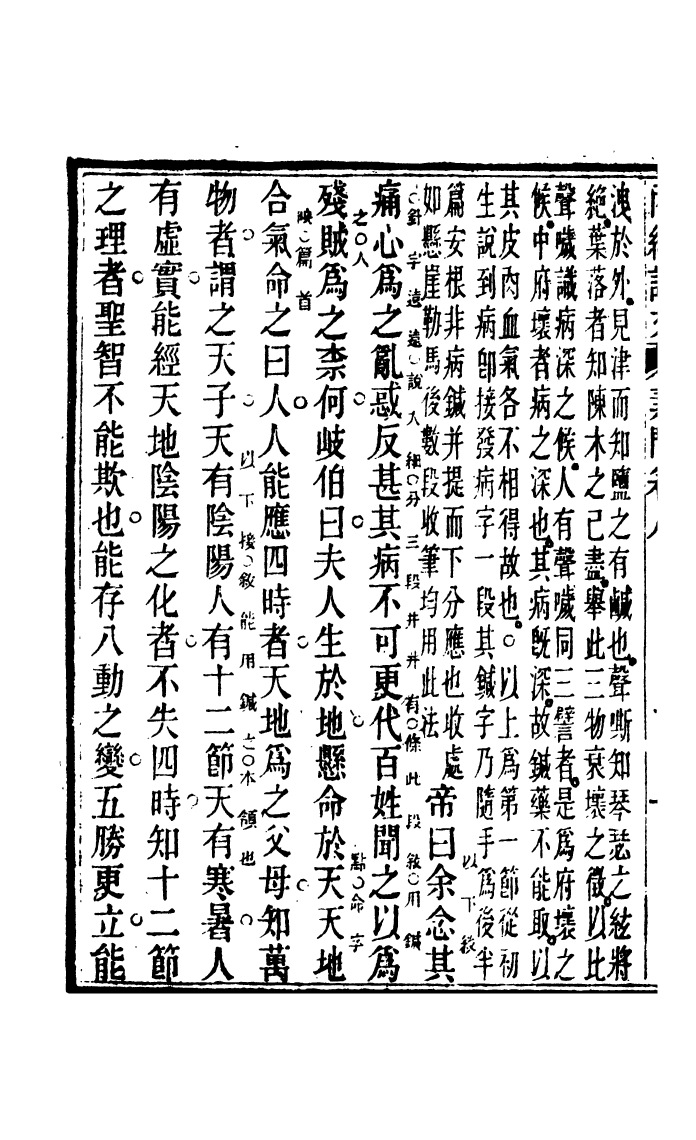 洩於外見津而知鹽之有鹹也聲嘶知琴瑟之絃將
絕葉落者知陳木之已盡舉此三物衰壞之徵以比
聲噦識病深之候人有聲噦同三譬者是爲府壞之
候中府壞者病之深也其病既深故鍼藥不能取以
其皮肉血氣各不相得故也○以上爲第一節從初
生說到病卽接發病字一段其鍼字乃隨手爲後半
篇安根非病鍼并提而下分應也收處
如懸崖勒馬後數段收筆均用此法
帝曰余念其
以下敘
針字遠遠說入細分三段井井有條此段敘用鍼
之人
痛心爲之亂惑反甚其病不可更代百姓聞之以爲
殘賊爲之柰何岐伯曰夫人生於地懸命於天天地
點命字
映篇首
合氣命之曰人人能應四時者天地爲之父母知萬
以下接敘能用鍼之本領也
物者謂之天子天有陰陽人有十二節天有寒暑人
有虛實能經天地陰陽之化者不失四時知十二節
之理者聖智不能欺也能存八動之變五勝更立能